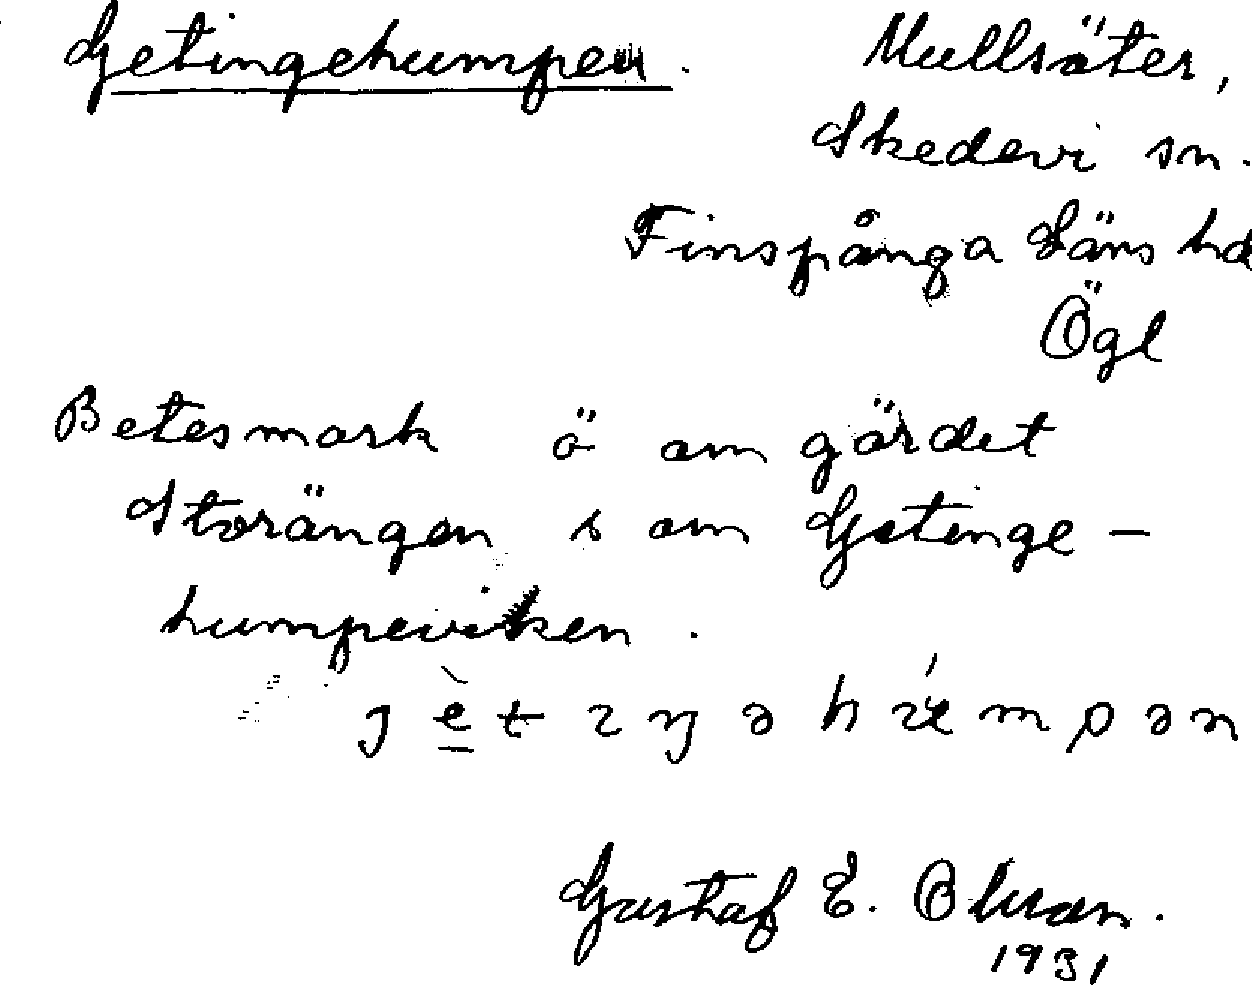 Getingehumpen. Mullsäter,
Skedevi sn.
Finspånga Läns hd
Ögl
Betesmark ö om gärdet
Storängen s om Getinge-
humpeviken.
Gustaf E. Olsson.
1931